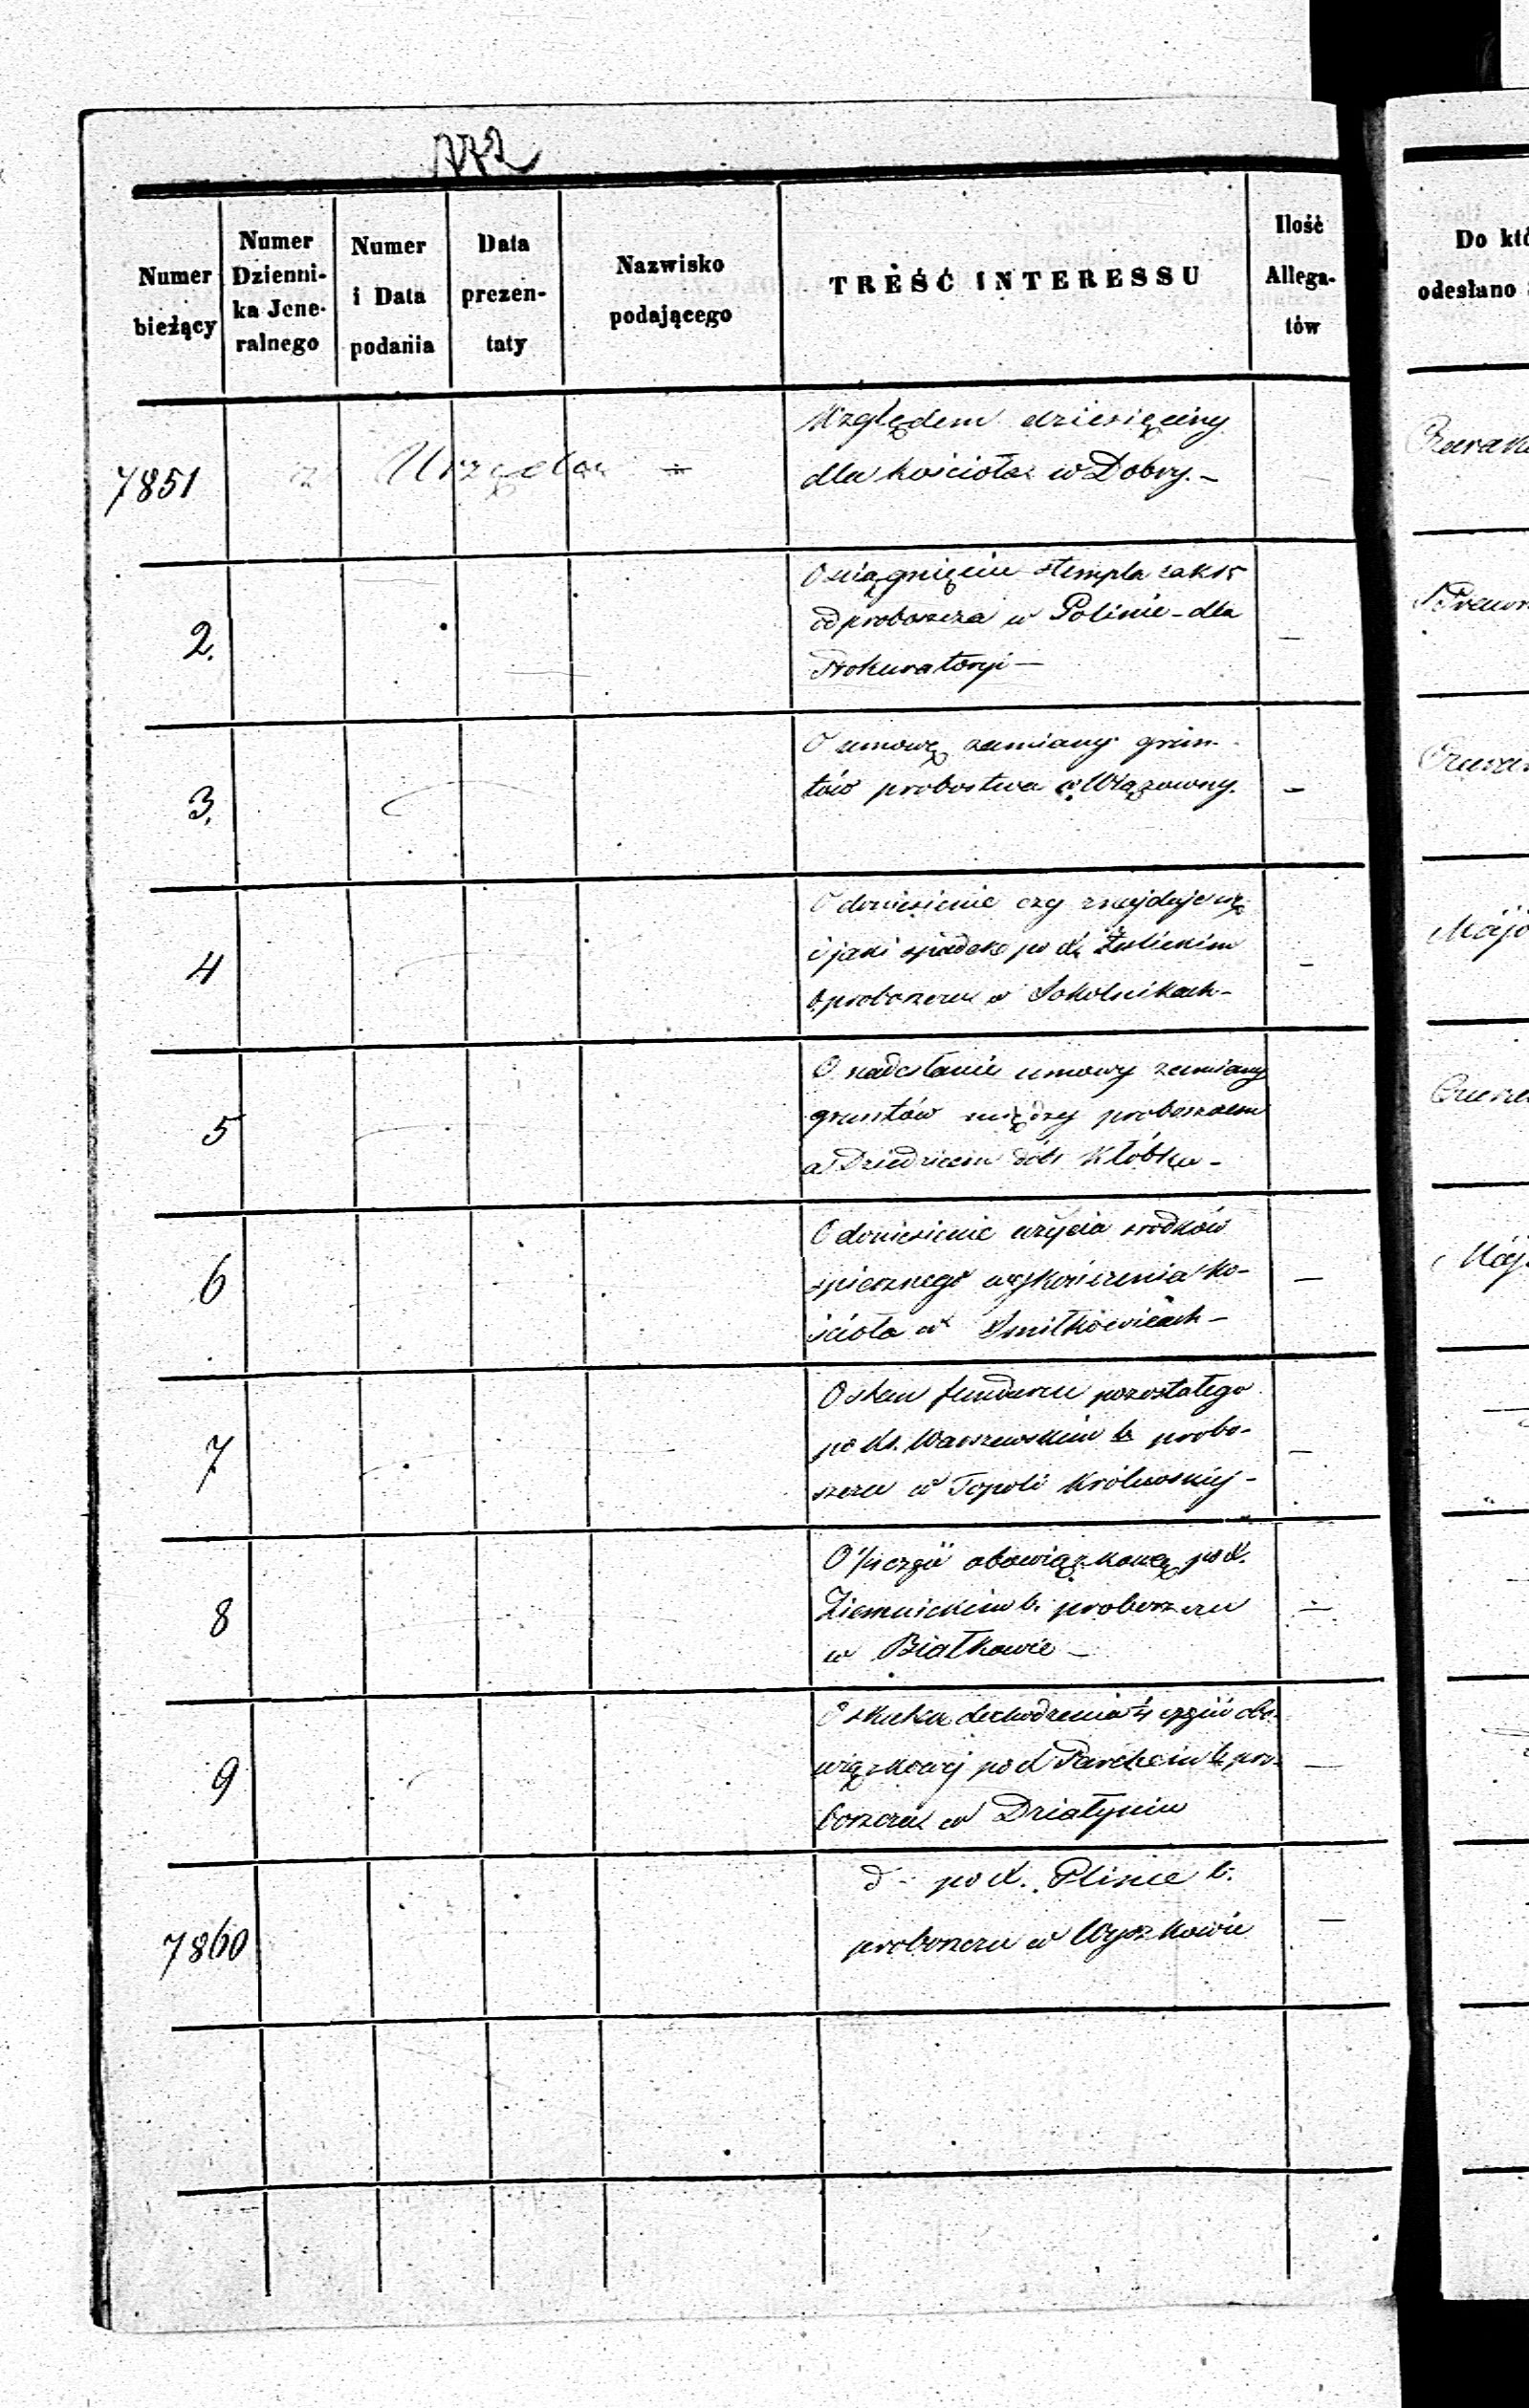 Numer bieżący
Numer Dzienni-ka Jene-ralnego
Numer i Data podania
Data prezen-taty
Nazwisko podającego
TREŚĆ INTERESSU
Ilość Allega-tów
Do któ
odesłano
7851
z Urzędu
Względem dziesięciny
dla kościoła w Dobry. –
2.
O ściągnięcie stempla za k 15
od proboszcza w Polinie – dla
Prokuratoryi –
–
3.
O umowę zamiany grun-
tów probostwa w Wiązowny.
–
4
O doniesienie czy znajduje się
i jaki spadek po X. Żulickim
b. proboszczu w Sokolnikach –
–
5
O nadesłanie umowy zamiany
gruntów między proboszczem
a Dziedzicem dóbr Kłóbka –
6
O doniesienie użycia srodków
spiesznego wykończenia ko-
ścioła w Smiłkowicach –
–
7
O stan funduszu pozostałego
po Ks. Warszewskim b. probo-
szczu w Topoli Królewskiej –
–
8
obowiązkową po X.
Ziemnickim b. proboszczu
w Białkowie –
–
9
O skutku dochodzenia obo-
wiązkowej po X b. pro-
boszczu w Działyniu
–
7860
d– po X. Plince b.
proboszczu w Wyszkowie
–